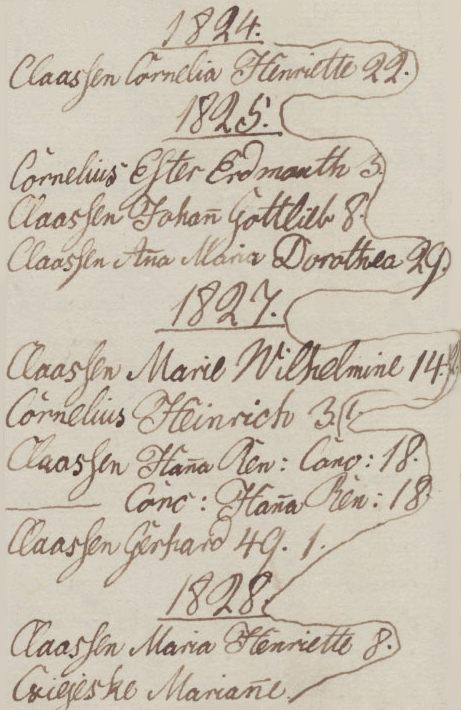 1824.
Claassen Cornelia Henriette 22.
1825.
Cornelius Ester Erdmouth 3.
Claassen Johan̄ Gottlieb 8.
Claassen An̄a Maria Dorothea 29.
1827.
Claassen Marie Wilhelmine 14.
Cornelius Heinrich 3.
Claassen Han̄a Ren: Caro: 18.
——— Caro: Han̄a Ren: 18.
Claassen Gerhard 49. 1.
1828.
Claassen Maria Henriette 8.
Marian̄e.